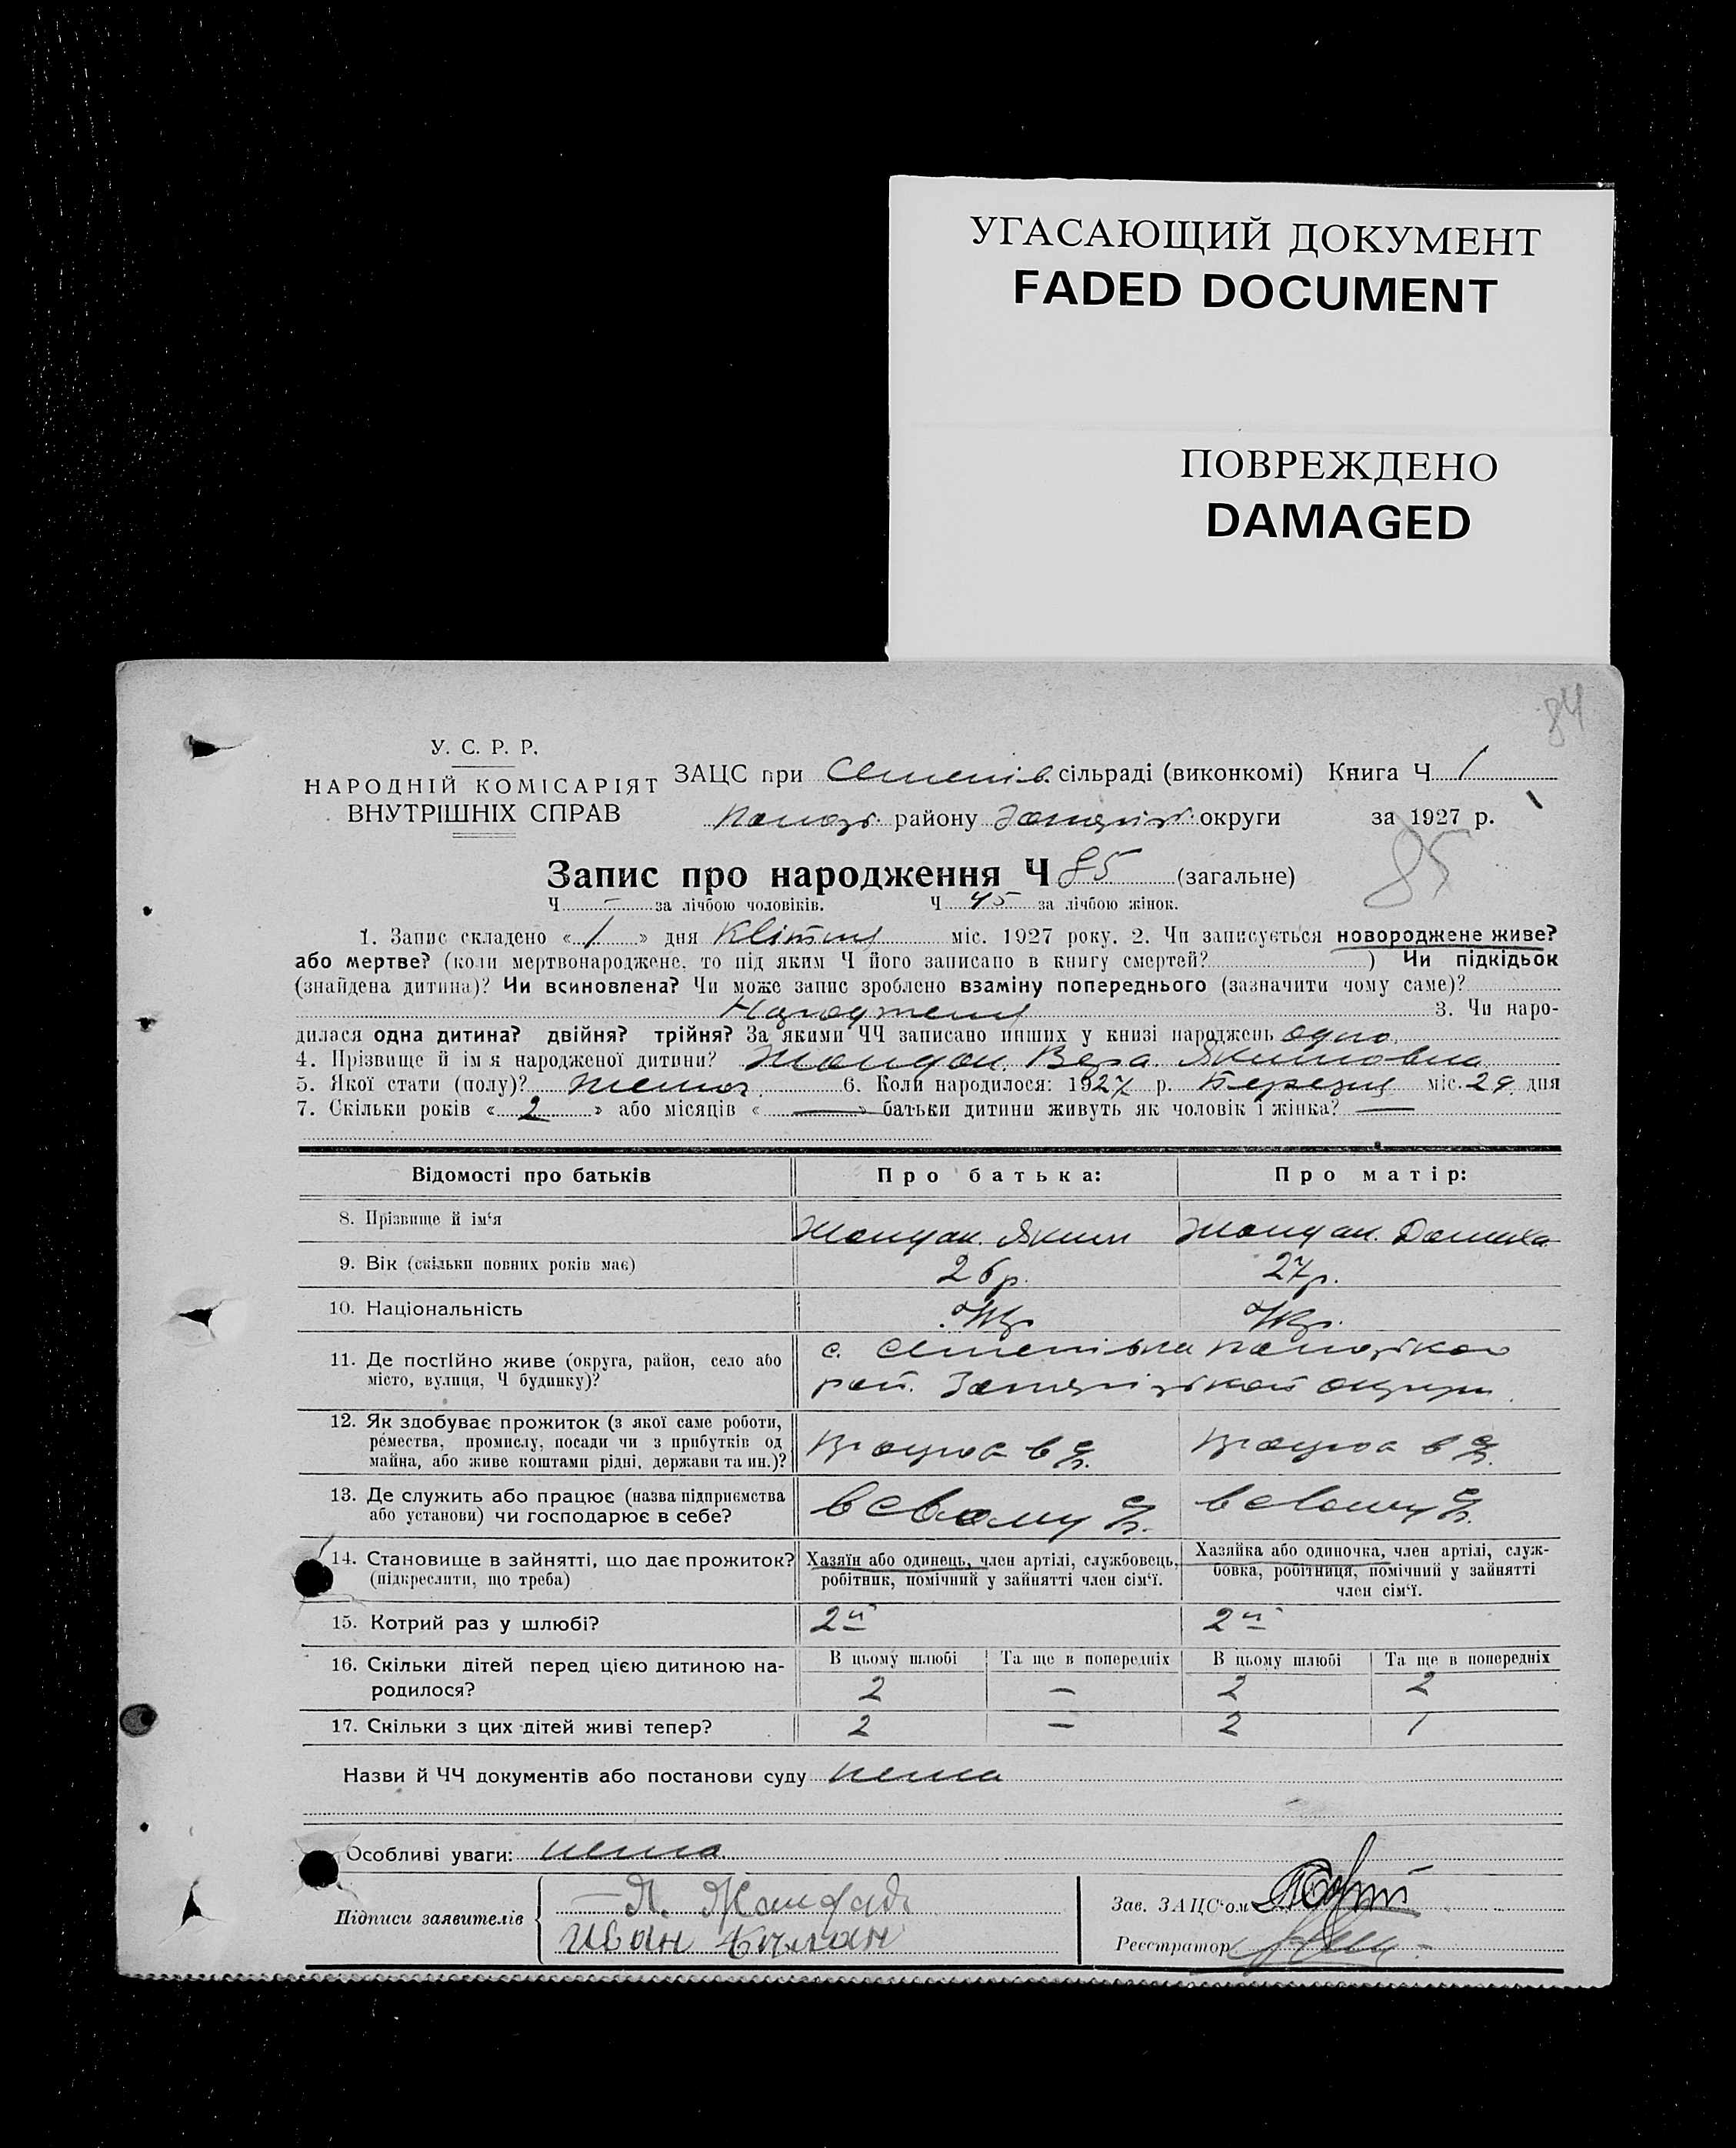 УГАСАЮЩИЙ ДОКУМЕНТ
FADED DOCUMENT
ПОВРЕЖДЕНО
DAMAGED
84
У. С. Р. Р.
НАРОДНІЙ КОМІСАРІЯТ
ВНУТРІШНІХ СПРАВ
ЗАЦС при Семенів. сільраді (виконкомі) Книга Ч 1
району округи за 1927 р.
Запис про народження Ч 85 (загальне)
85
Ч – за лічбою чоловіків. Ч 45 за лічбою жінок.
1. Запис складено « 1 » дня Квітня міс. 1927 року. 2. Чи записується новороджене живе?
або мертве? (коли мертвонароджене, то під яким Ч його записано в книгу смертей? ) Чи підкідьок
(знайдена дитина)? Чи всиновлена? Чи може запис зроблено взаміну попереднього (зазначити чому саме)?
3. Чи наро-
дилася одна дитина? двійня? трійня? За якими ЧЧ записано инших у книзі народжень одно.
4. Прізвище й ім'я народженої дитини? Жандак Вера Якимовна
5. Якої стати (полу)? 6. Коли народилося: 1927 р. Березня міс. 29 дня
7. Скільки років « 2 » або місяців « — » батьки дитини живуть як чоловік і жінка? —
Відомості про батьків Про батька: Про матір:
8. Прізвище й ім'я Жандак. Яким Жандак. Домника
9. Вік (скільки повних років має) 26 р. 27 р.
10. Національність Укр. Укр.
11. Де постійно живе (округа, район, село або
місто, вулиця, Ч будинку)?
с. Семенівка
рай. Запорізької округи
12. Як здобуває прожиток (з якої саме роботи,
ремества, промислу, посади чи з прибутків од
майна, або живе коштами рідні, держави та ин.)?
Працює в с/г. Працює в с/г.
13. Де служить або працює (назва підприємства
або установи) чи господарює в себе?
в свому с/г. в свому с/г.
14. Становище в зайнятті, що дає прожиток?
(підкреслити, що треба)
Хазяїн або одинець, член артілі, службовець,
робітник, помічний у зайнятті член сім'ї.
Хазяйка або одиночка, член артілі, служ-
бовка, робітниця, помічний у зайнятті
член сім'ї.
15. Котрий раз у шлюбі? 2й 2й
16. Скільки дітей перед цією дитиною на-
родилося?
В цьому шлюбі Та ще в попередніх В цьому шлюбі Та ще в попередніх
2 – 2 2
17. Скільки з цих дітей живі тепер? 2 – 2 1
Назви й ЧЧ документів або постанови суду нема
Особливі уваги: нема
Підписи заявителів
Иван
Зав. ЗАЦС'ом
Реєстратор